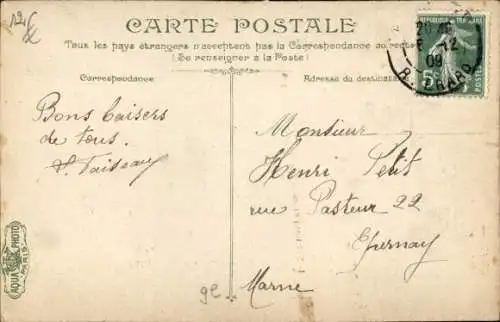 CARTE POSTALE
Tous les pays étrangers n'acceptent pas la Correspondance au recto
(Se renseigner à la Poste)
Correspondance
Adresse du destinat
REPUBLIQUE FRANÇAISE
5c
POSTES
12
09
Bons baisers
de tous.
Monsieur
Henri Petit
rue Pasteur 22
Epernay
Marne
AQUA PHOTO